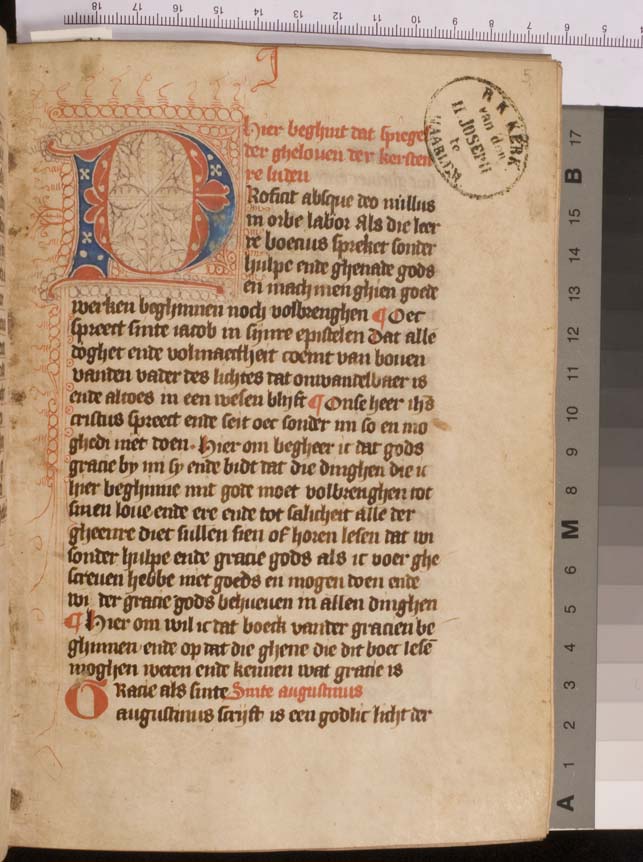 I
5
Hier beghint dat spiegel
der ghelouen der kersten
re luden
PRoficit absque deo nullus
in orbe labor Als die leer
re boecius spreket sonder
hulpe ende ghenade gods
en mach men ghien goede
werken beghinnen noch volbrenghen ¶ Oec
spreect sinte iacob in sijnre epistelen Dat alle
doghet ende volmaectheit coemt van bouen
vanden vader des lichtes dat onwandelbaer is
ende altoes in een wesen blijft ¶ Onse heer ihs
cristus spreect ende seit oec sonder mi so en mo
ghedi niet doen. Hier om begheer ic dat gods
gracie by mi sy ende bidt dat die dinghen die ic
hier beghinne mit gode moet volbrenghen tot
sinen loue ende ere ende tot salicheit alle der
gheenre diet sullen sien of horen lesen dat wi
sonder hulpe ende gracie gods als ic voer ghe
screuen hebbe niet goeds en mogen doen ende
wi der gracie gods behueuen in allen dinghen
¶ Hier om wil ic dat boeck vander gracien be
ghinnen ende op dat die ghene die dit boec lesē
moghen weten ende kennen wat gracie is
GRacie als sinte Sinte augustinus
augustinus scrijft is een godlic licht der
R K KERK
van den
H JOSEPH
te
HAARLEM
18 17 16 15 14 13 12 11 10 9 8 7 6 5
17
B
15
14
13
12
11
10
9
8
M
6
5
4
3
2
1
A